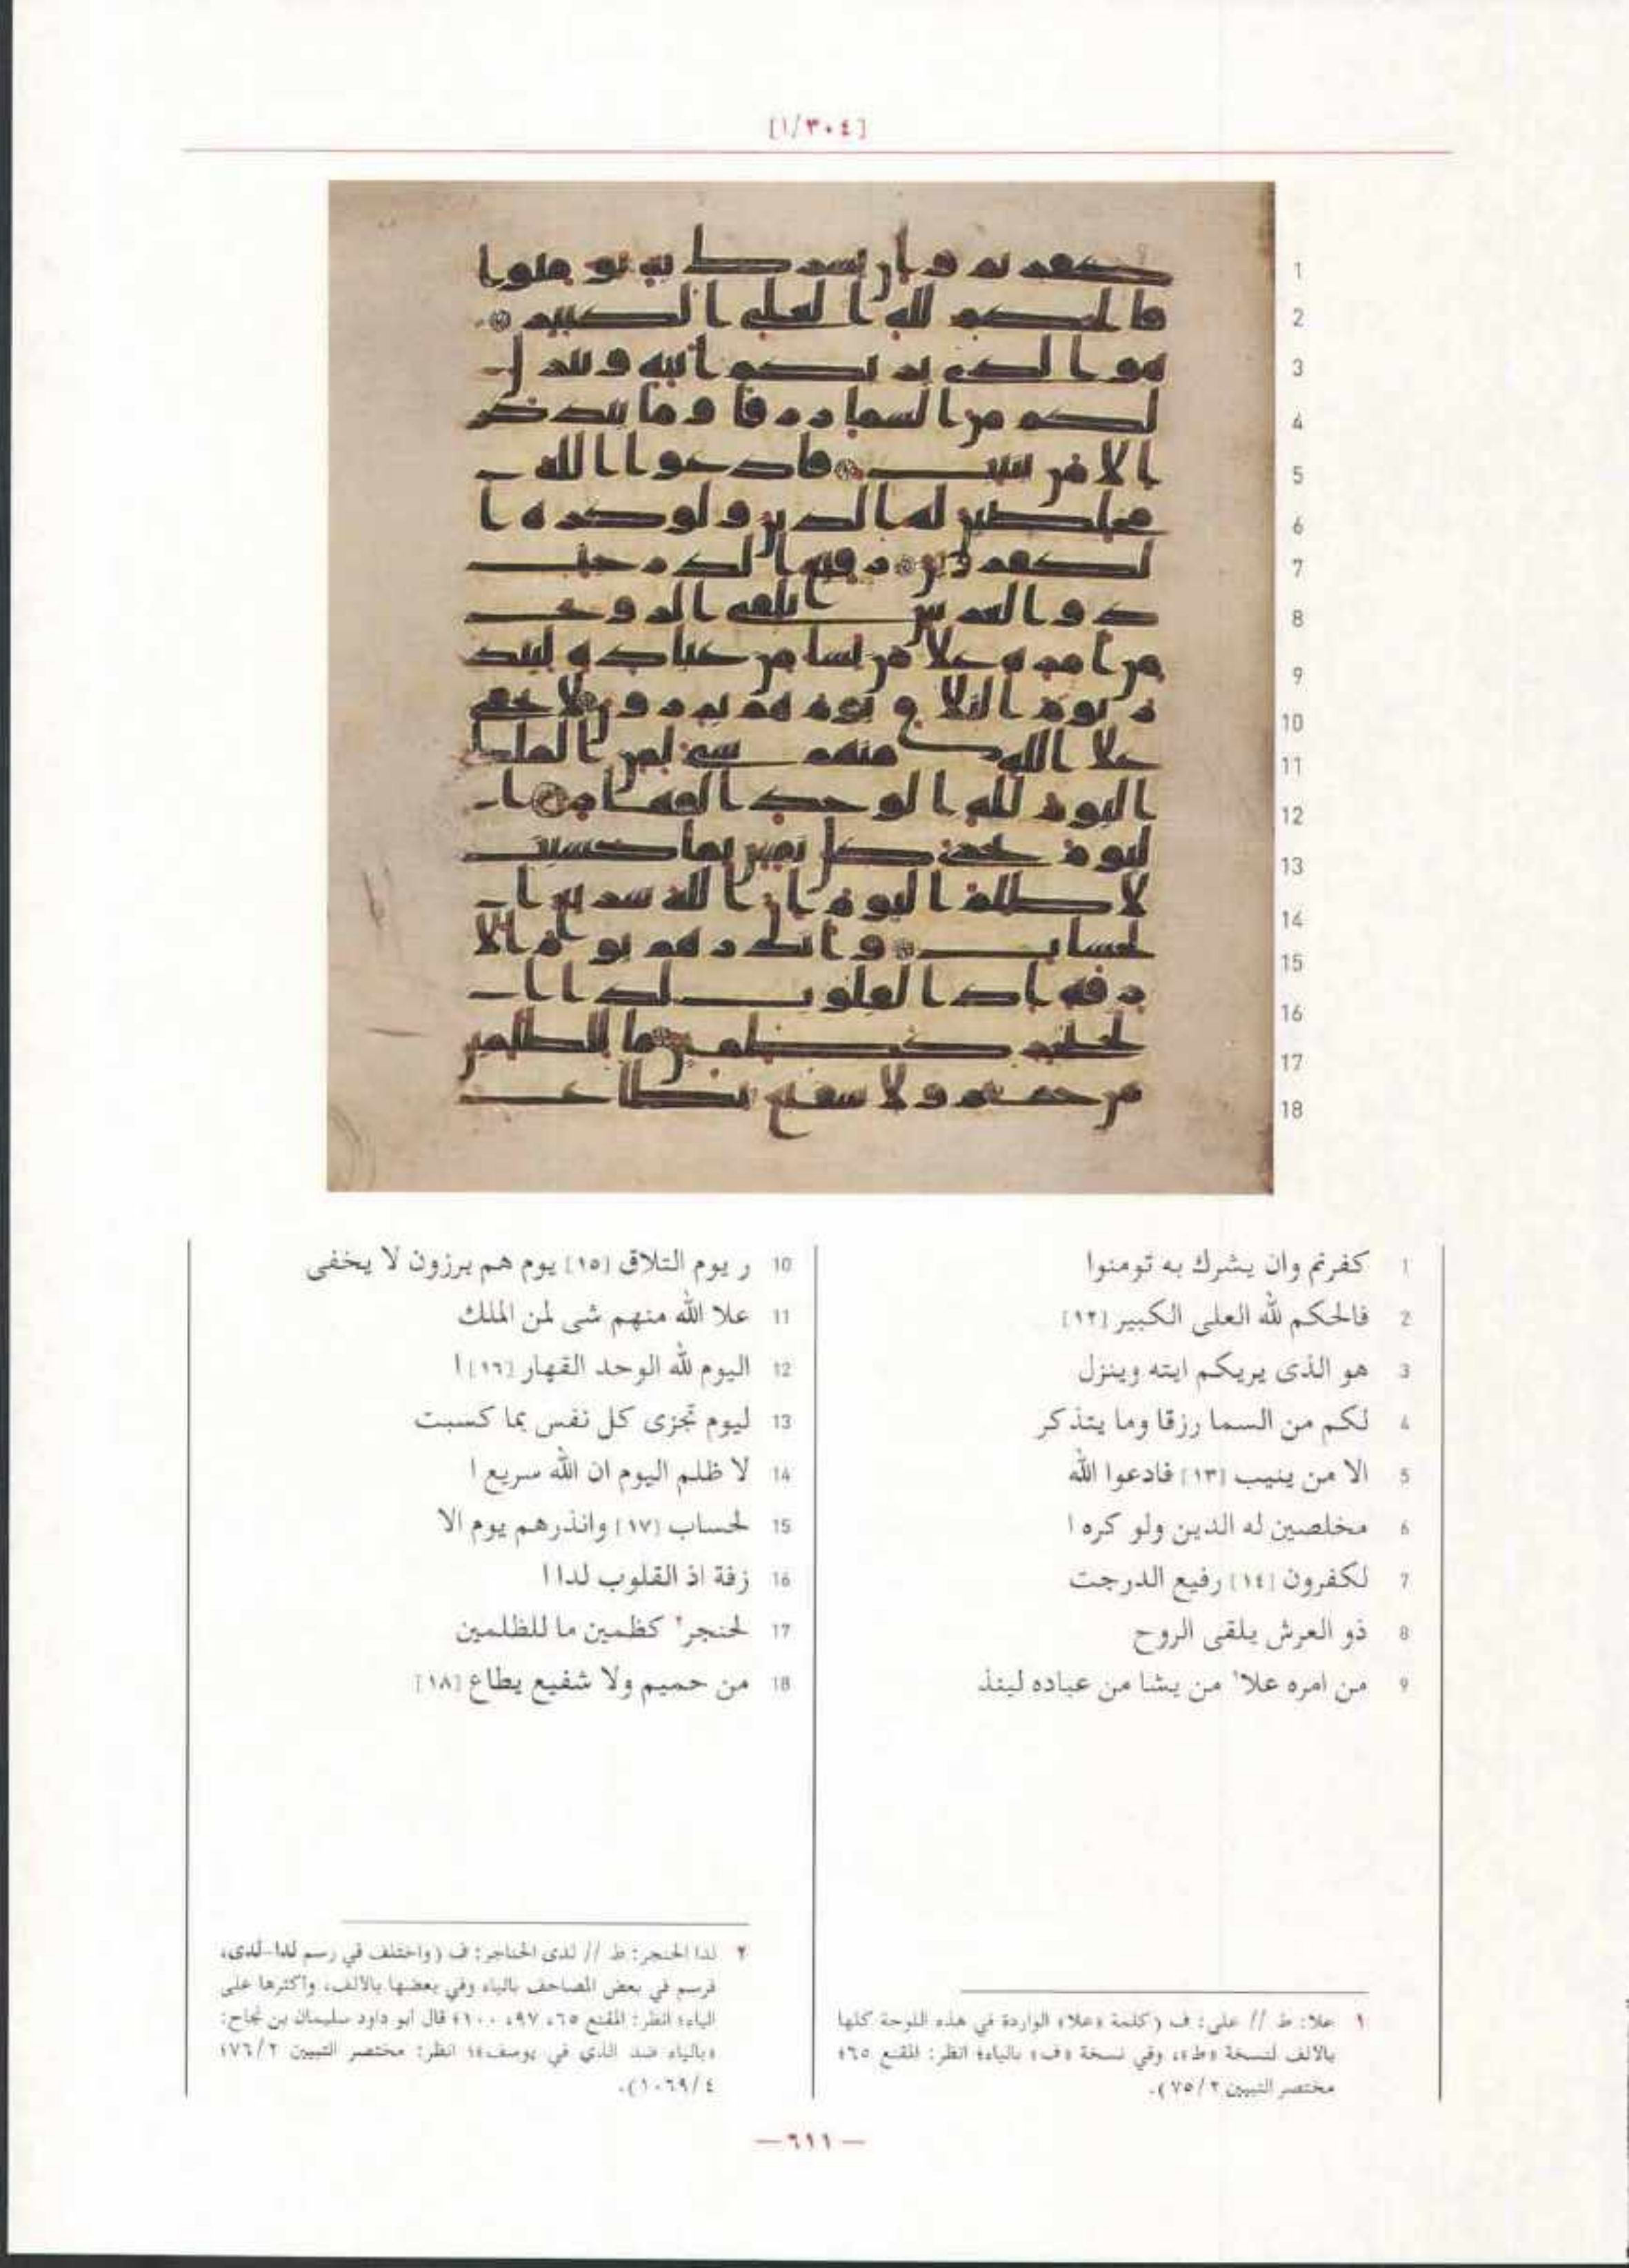 [٣٠٤/١]
1
2
3
4
5
6
7
8
9
10
11
12
13
14
15
16
17
18
1 كفرتم وان يشرك به تومنوا
2 فالحكم لله العلى الكبير [١٢]
3 هو الذى يريكم ايته وينزل
4 لكم من السما رزقا وما يتذكر
5 الا من ينيب [١٣] فادعوا الله
6 مخلصين له الدين ولو كره ا
7 لكفرون [١٤] رفيع الدرجت
8 ذو العرش يلقى الروح
9 من امره علا١ من يشا من عباده لينذ
10 ر يوم التلاق [١٥] يوم هم برزون لا يخفى
11 علا الله منهم شى لمن الملك
12 اليوم لله الوحد القهار [١٦] ا
13 ليوم تجزى كل نفس بما كسبت
14 لا ظلم اليوم ان الله سريع ا
15 لحساب [١٧] وانذرهم يوم الا
16 زفة اذ القلوب لدا ا
17 لحنجر٢ كظمين ما للظلمين
18 من حميم ولا شفيع يطاع [١٨]
١ علا: ط // على: ف (كلمة «علا» الواردة في هذه اللوحة كلها
بالالف لنسخة «ط»، وفي نسخة «ف» بالياء؛ انظر: المقنع ٦٥؛
مختصر التبيين ٧٥/٢).
٢ لدا الحنجر: ط // لدى الحناجر: ف (واختلف في رسم لدا-لدى،
فرسم في بعض المصاحف بالياء وفي بعضها بالالف، واكثرها على
الياء؛ انظر: المقنع ٦٥، ٩٧، ١٠٠؛ قال ابو داود سليمان بن نجاح:
«بالياء ضد الذي في يوسف»؛ انظر: مختصر التبيين ٧٦/٢؛
١٠٦٩/٤).
— ٦١١ —